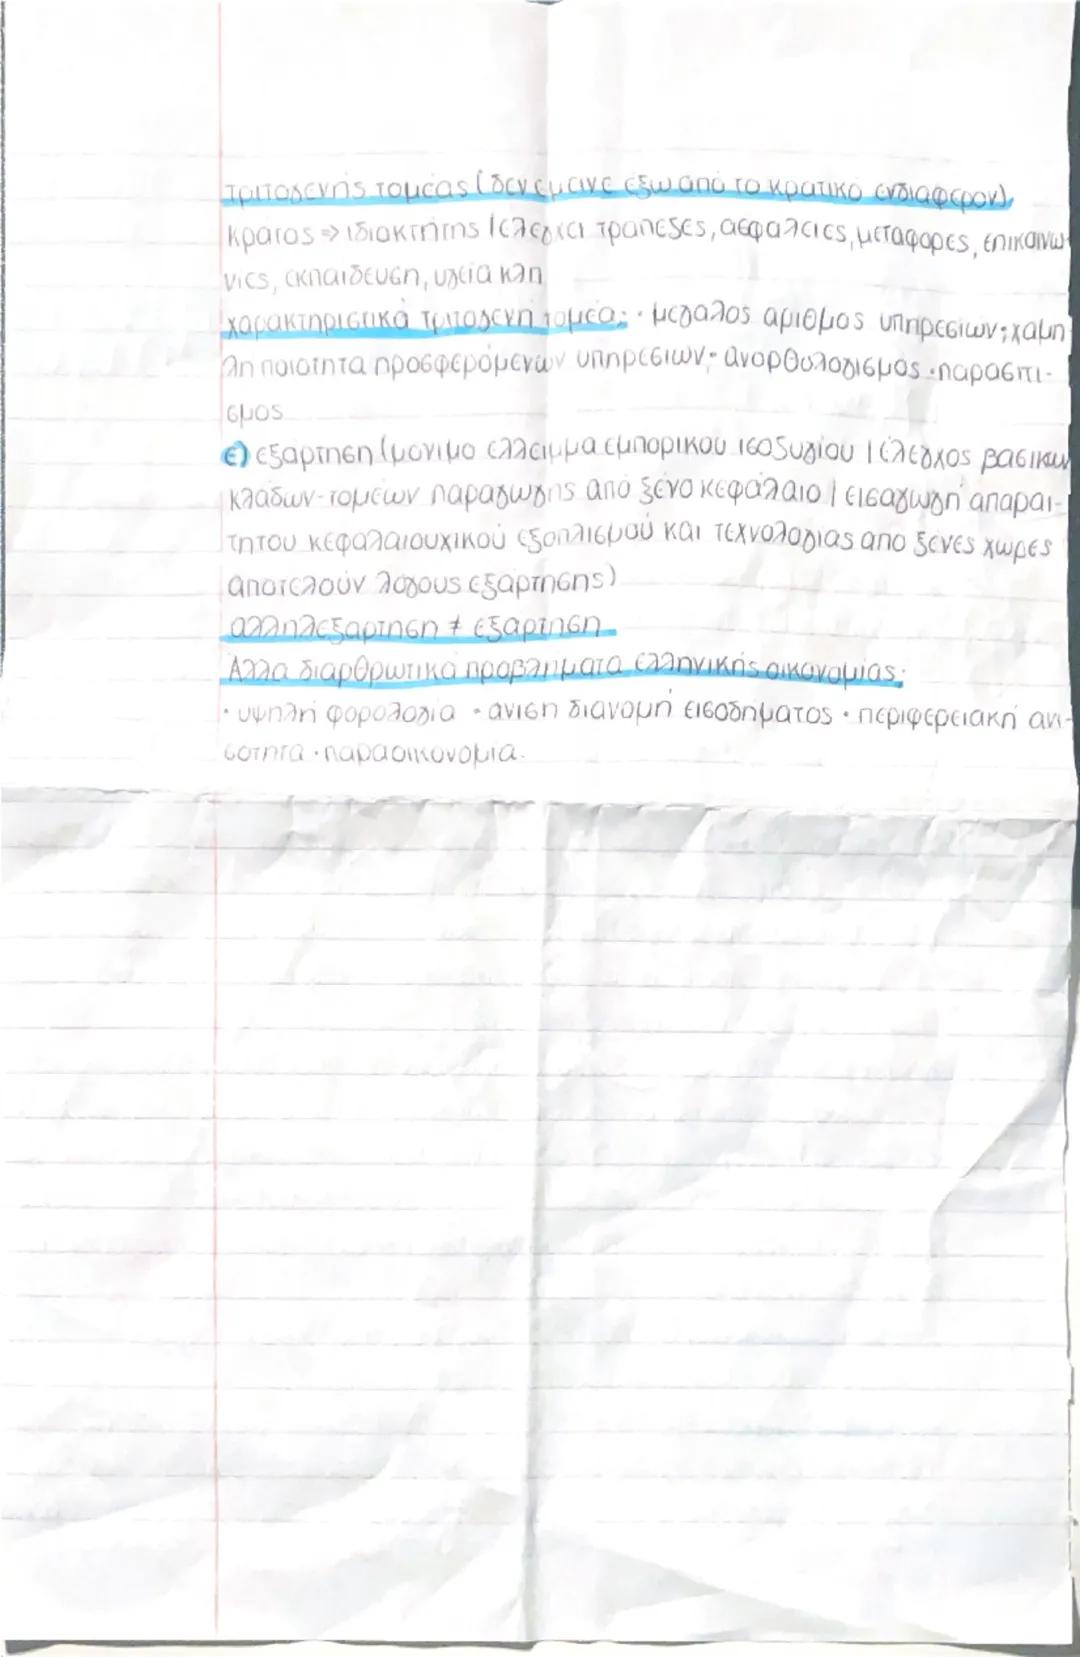 τριτογενής τομέας (δεν έμεινε έξω από το κρατικό ενδιαφέρον),
κράτος ⇒ ιδιοκτήτης / ελέγχει τράπεζες, ασφάλειες, μεταφορές, επικοινω-
νίες, εκπαίδευση, υγεία κλπ
χαρακτηριστικά τριτογενή τομέα: · μεγάλος αριθμός υπηρεσιών · χαμη
λη ποιότητα προσφερόμενων υπηρεσιών · ανορθολογισμός · παρασιτι-
σμός
ε) εξάρτηση (μόνιμο έλλειμμα εμπορικού ισοζυγίου / έλεγχος βασικών
κλάδων-τομέων παραγωγής από ξένο κεφάλαιο / εισαγωγή απαραι-
τητου κεφαλαιουχικού εξοπλισμού και τεχνολογίας από ξένες χώρες
αποτελούν λόγους εξάρτησης)
αλληλεξάρτηση ≠ εξάρτηση
Άλλα διαρθρωτικά προβλήματα ελληνικής οικονομίας:
· υψηλή φορολογία · άνιση διανομή εισοδήματος · περιφερειακή ανι-
σότητα · παραοικονομία.